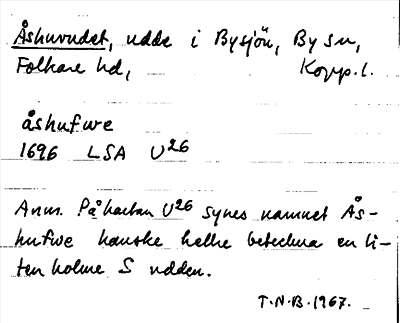 Åshuvudet, udde i Bysjön, By sn,
Folkare hd, Kopp.l.
åshufwe
1696 LSA U26
Anm. På kartan U26 synes namnet Ås-
hufwe kanske hellre beteckna en li-
ten holme S udden.
T.N.B. 1967.